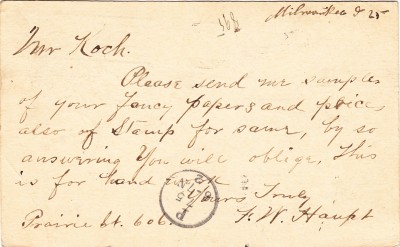 Milwaukee 25
Mr Koch.
Please send me samples
of your fancy papers and prices
also of Stamp for same, by so
answering You will oblige, This
is for hand
Yours Truly
Prairie St. 606. F. W. Haupt